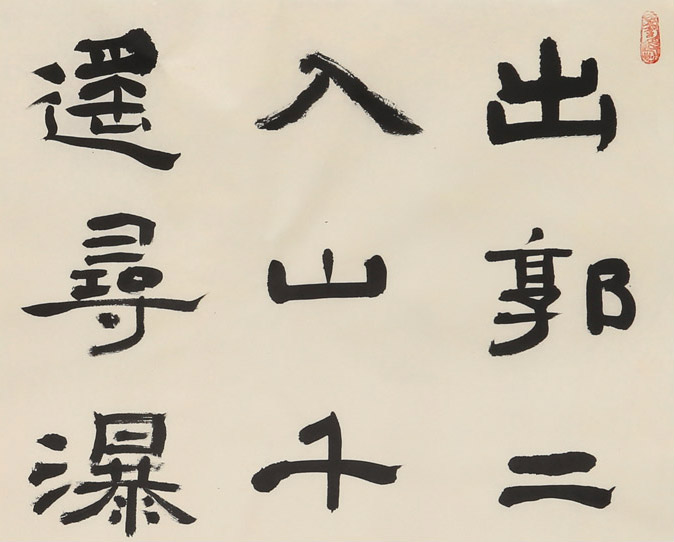 出郭二
入山千
遥尋瀑